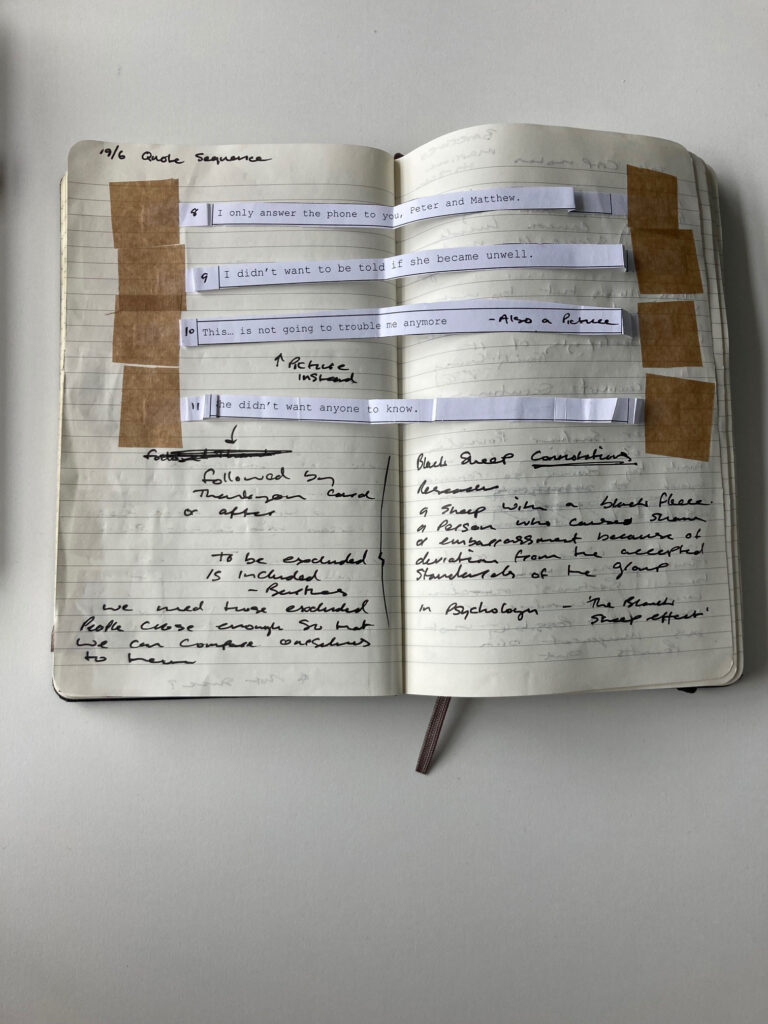 19/6 Quote Sequence
8 I only answer the phone to you, Peter and Matthew.
9 I didn't want to be told if she became unwell.
10 This… is not going to trouble me anymore - Also a Picture
↑ Picture
instead
11 he didn't want anyone to know.
↓
followed by
Thankyou card
or after
To be excluded
is included
-
we need those excluded
People close enough so that
we can compare ourselves
to them
Black Sheep Connotations
Research
a sheep with a black fleece.
a Person who caused shame
or embarrassment because of
deviation from the accepted
standards of the group
in Psychology - 'The Black
Sheep effect'